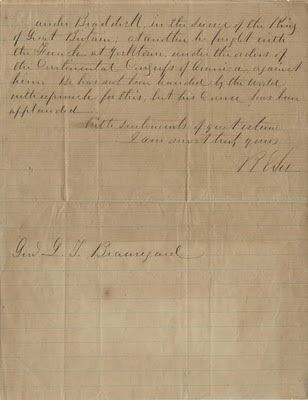 under Braddock in the service of the King
of Great Britain; at another he fought with
the French at Yorktown, under the orders of
the Continental Congress of America against
him. He has not been branded by the world
with reproach for this, but his course has been
applauded.
With sentiments of great esteem
I am most truly yours
R E Lee
Genl G. T. Beauregard